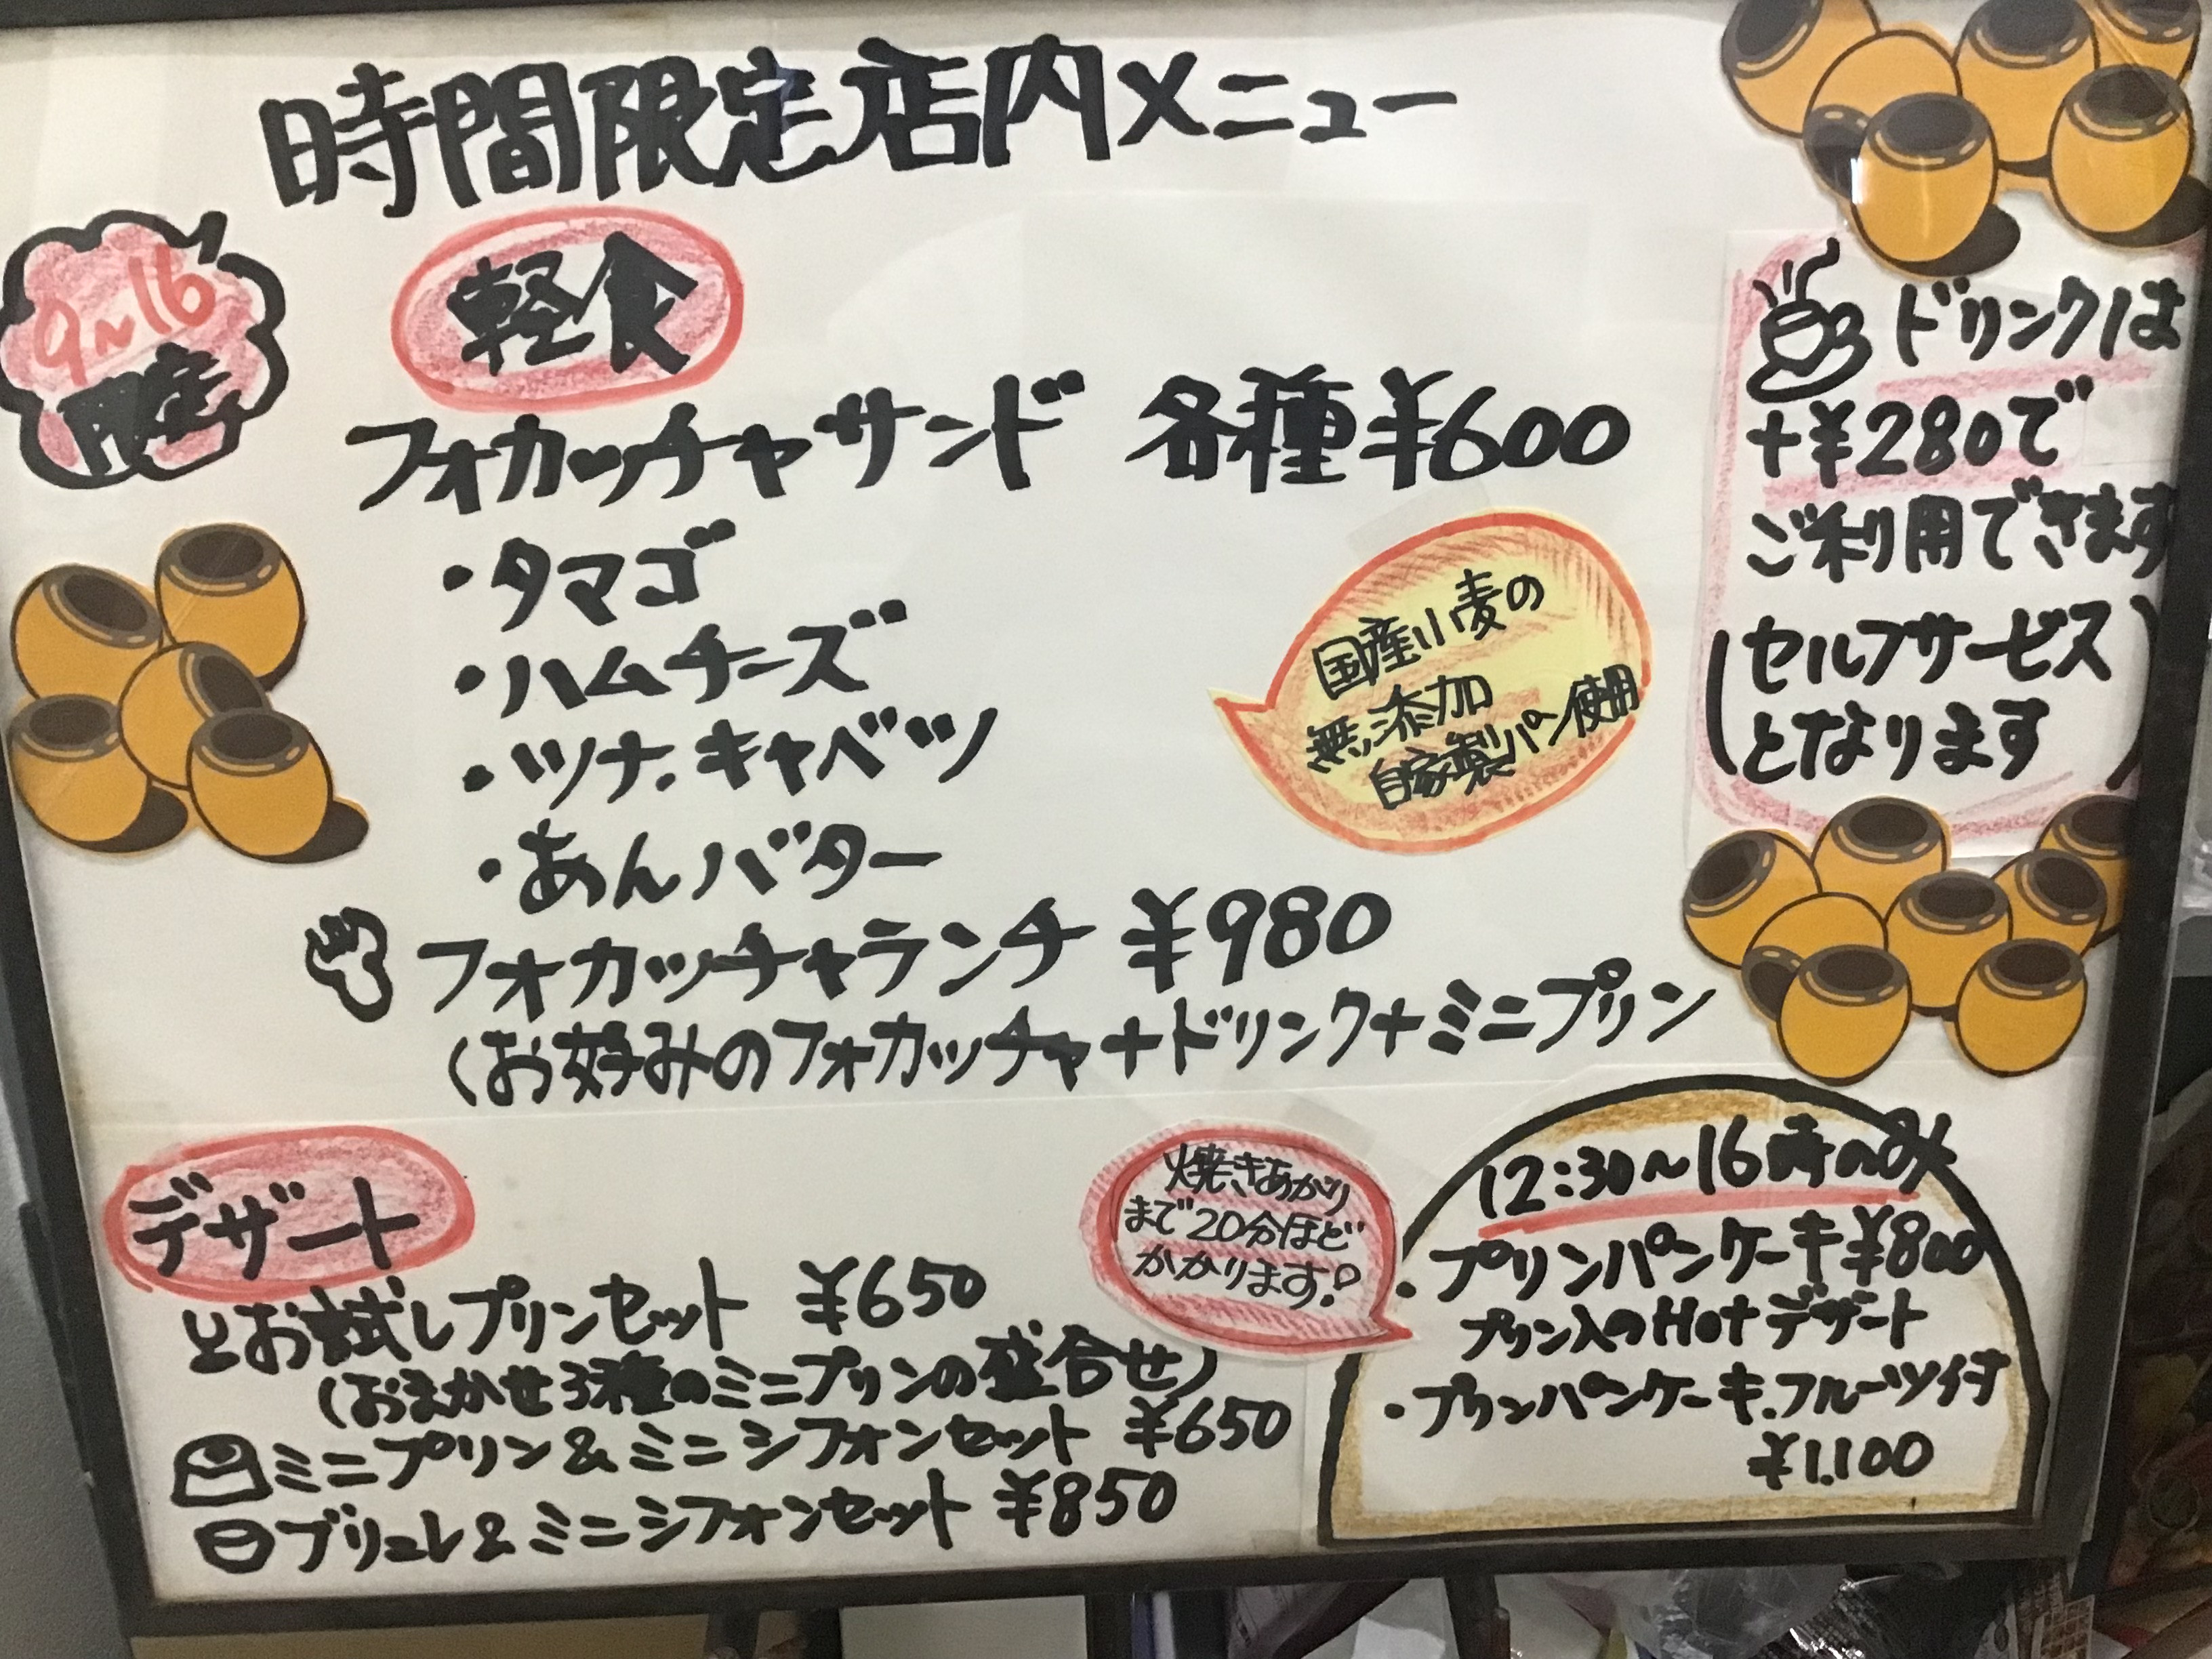 時間限定店内メニュー
9~16
限定
軽食
フォカッチャサンド 各種¥600
・タマゴ
・ハムチーズ
・ツナ.キャベツ
・あんバター
フォカッチャランチ ¥980
(お好みのフォカッチャ+ドリンク+ミニプリン
国産小麦の
無添加
自家製パン使用
ドリンクは
+¥280で
ご利用できます
(セルフサービス
となります)
デザート
お試しプリンセット ¥650
(おまかせ3種のミニプリンの盛合せ)
ミニプリン&ミニシフォンセット ¥650
ブリュレ&ミニシフォンセット ¥850
焼きあがり
まで20分ほど
かかります!
12:30~16時のみ
・プリンパンケーキ¥800
プリン入のHotデザート
・プリンパンケーキ.フルーツ付
¥1.100